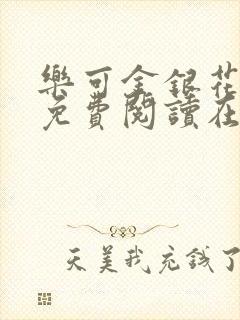 樂可金銀花
免費閱讀在
天美我充錢了